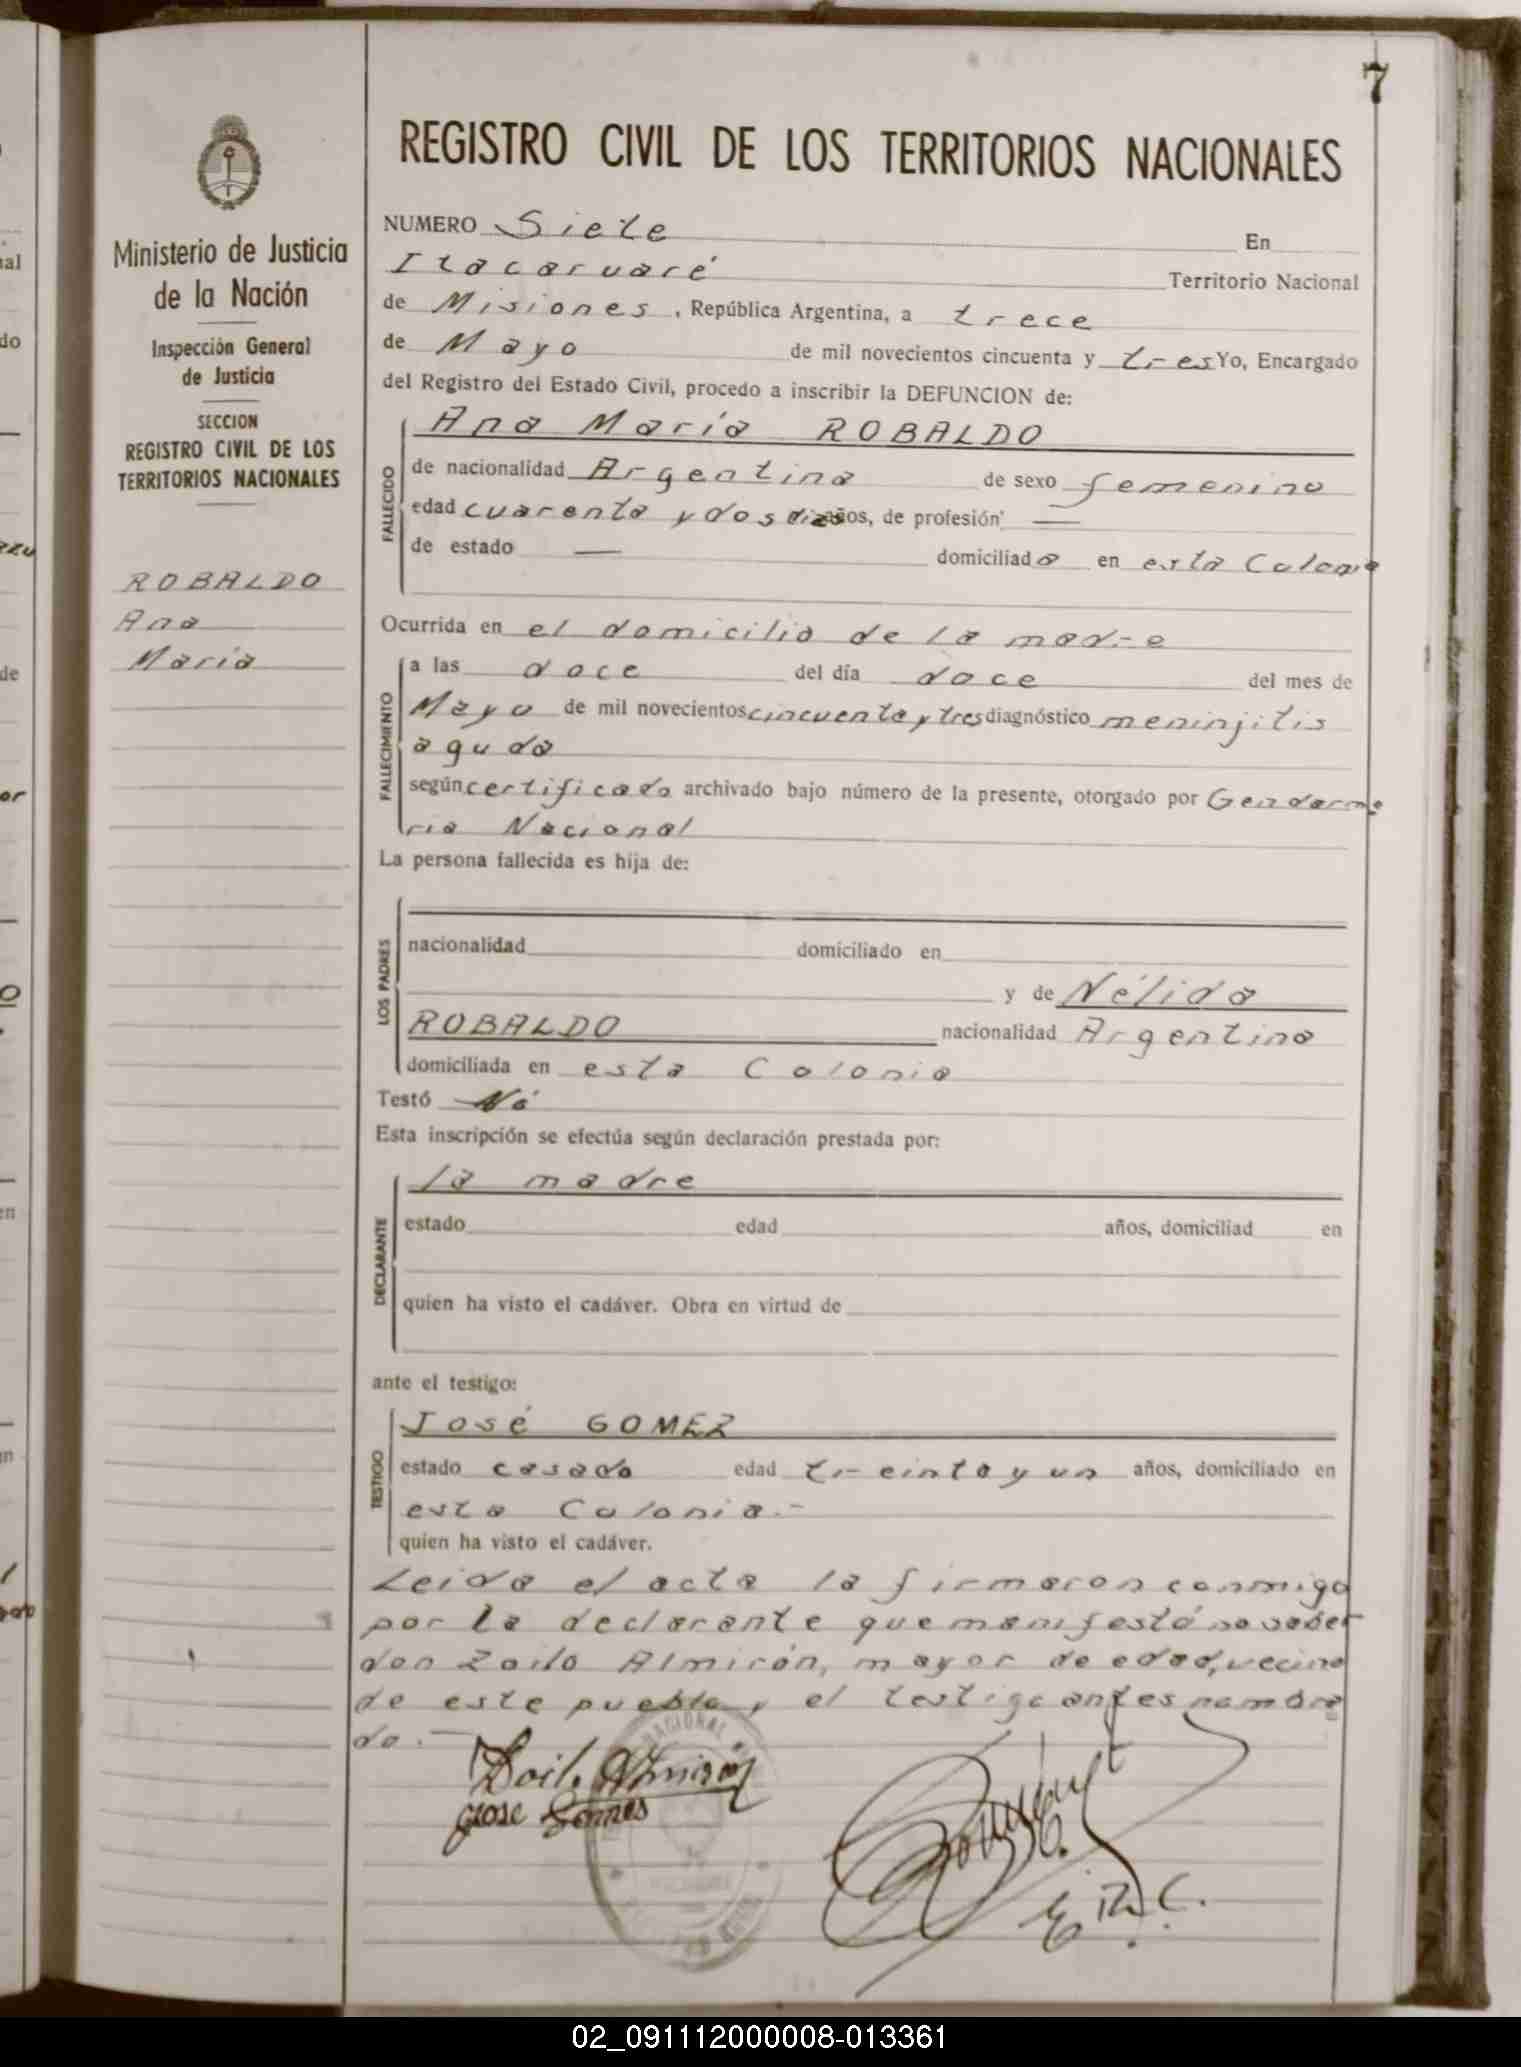 7
REGISTRO CIVIL DE LOS TERRITORIOS NACIONALES
Ministerio de Justicia
de la Nación
Inspección General
de Justicia
SECCION
REGISTRO CIVIL DE LOS
TERRITORIOS NACIONALES
ROBALDO
Ana
María
NUMERO Siete En
Itacaruaré Territorio Nacional
de Misiones, República Argentina, a trece
de Mayo de mil novecientos cincuenta y tres Yo, Encargado
del Registro del Estado Civil, procedo a inscribir la DEFUNCION de:
Ana María ROBALDO
FALLECIDO
de nacionalidad Argentina de sexo femenino
edad cuarenta y dos días años, de profesión —
de estado — domiciliada en esta Colonia
Ocurrida en el domicilio de la madre
FALLECIMIENTO
a las doce del día doce del mes de
Mayo de mil novecientos cincuenta y tres diagnóstico meninjitis
aguda
según certificado archivado bajo número de la presente, otorgado por Gendarme
ria Nacional
La persona fallecida es hija de:
LOS PADRES
nacionalidad domiciliado en
y de Nélida
ROBALDO nacionalidad Argentina
domiciliada en esta Colonia
Testó Nó
Esta inscripción se efectúa según declaración prestada por:
la madre
DECLARANTE
estado edad años, domiciliad en
quien ha visto el cadáver. Obra en virtud de
ante el testigo:
José GOMEZ
TESTIGO
estado casado edad treinta y un años, domiciliado en
esta Colonia.-
quien ha visto el cadáver.
Leida el acta la firmaron conmigo
por la declarante que manifestó no saber
don Zoilo Almirón, mayor de edad, vecino
de este pueblo y el testigo antes nombra
do.—
Zoilo Almirón
Jose Gomes
NACIONAL
E. R. C.
02_091112000008-013361